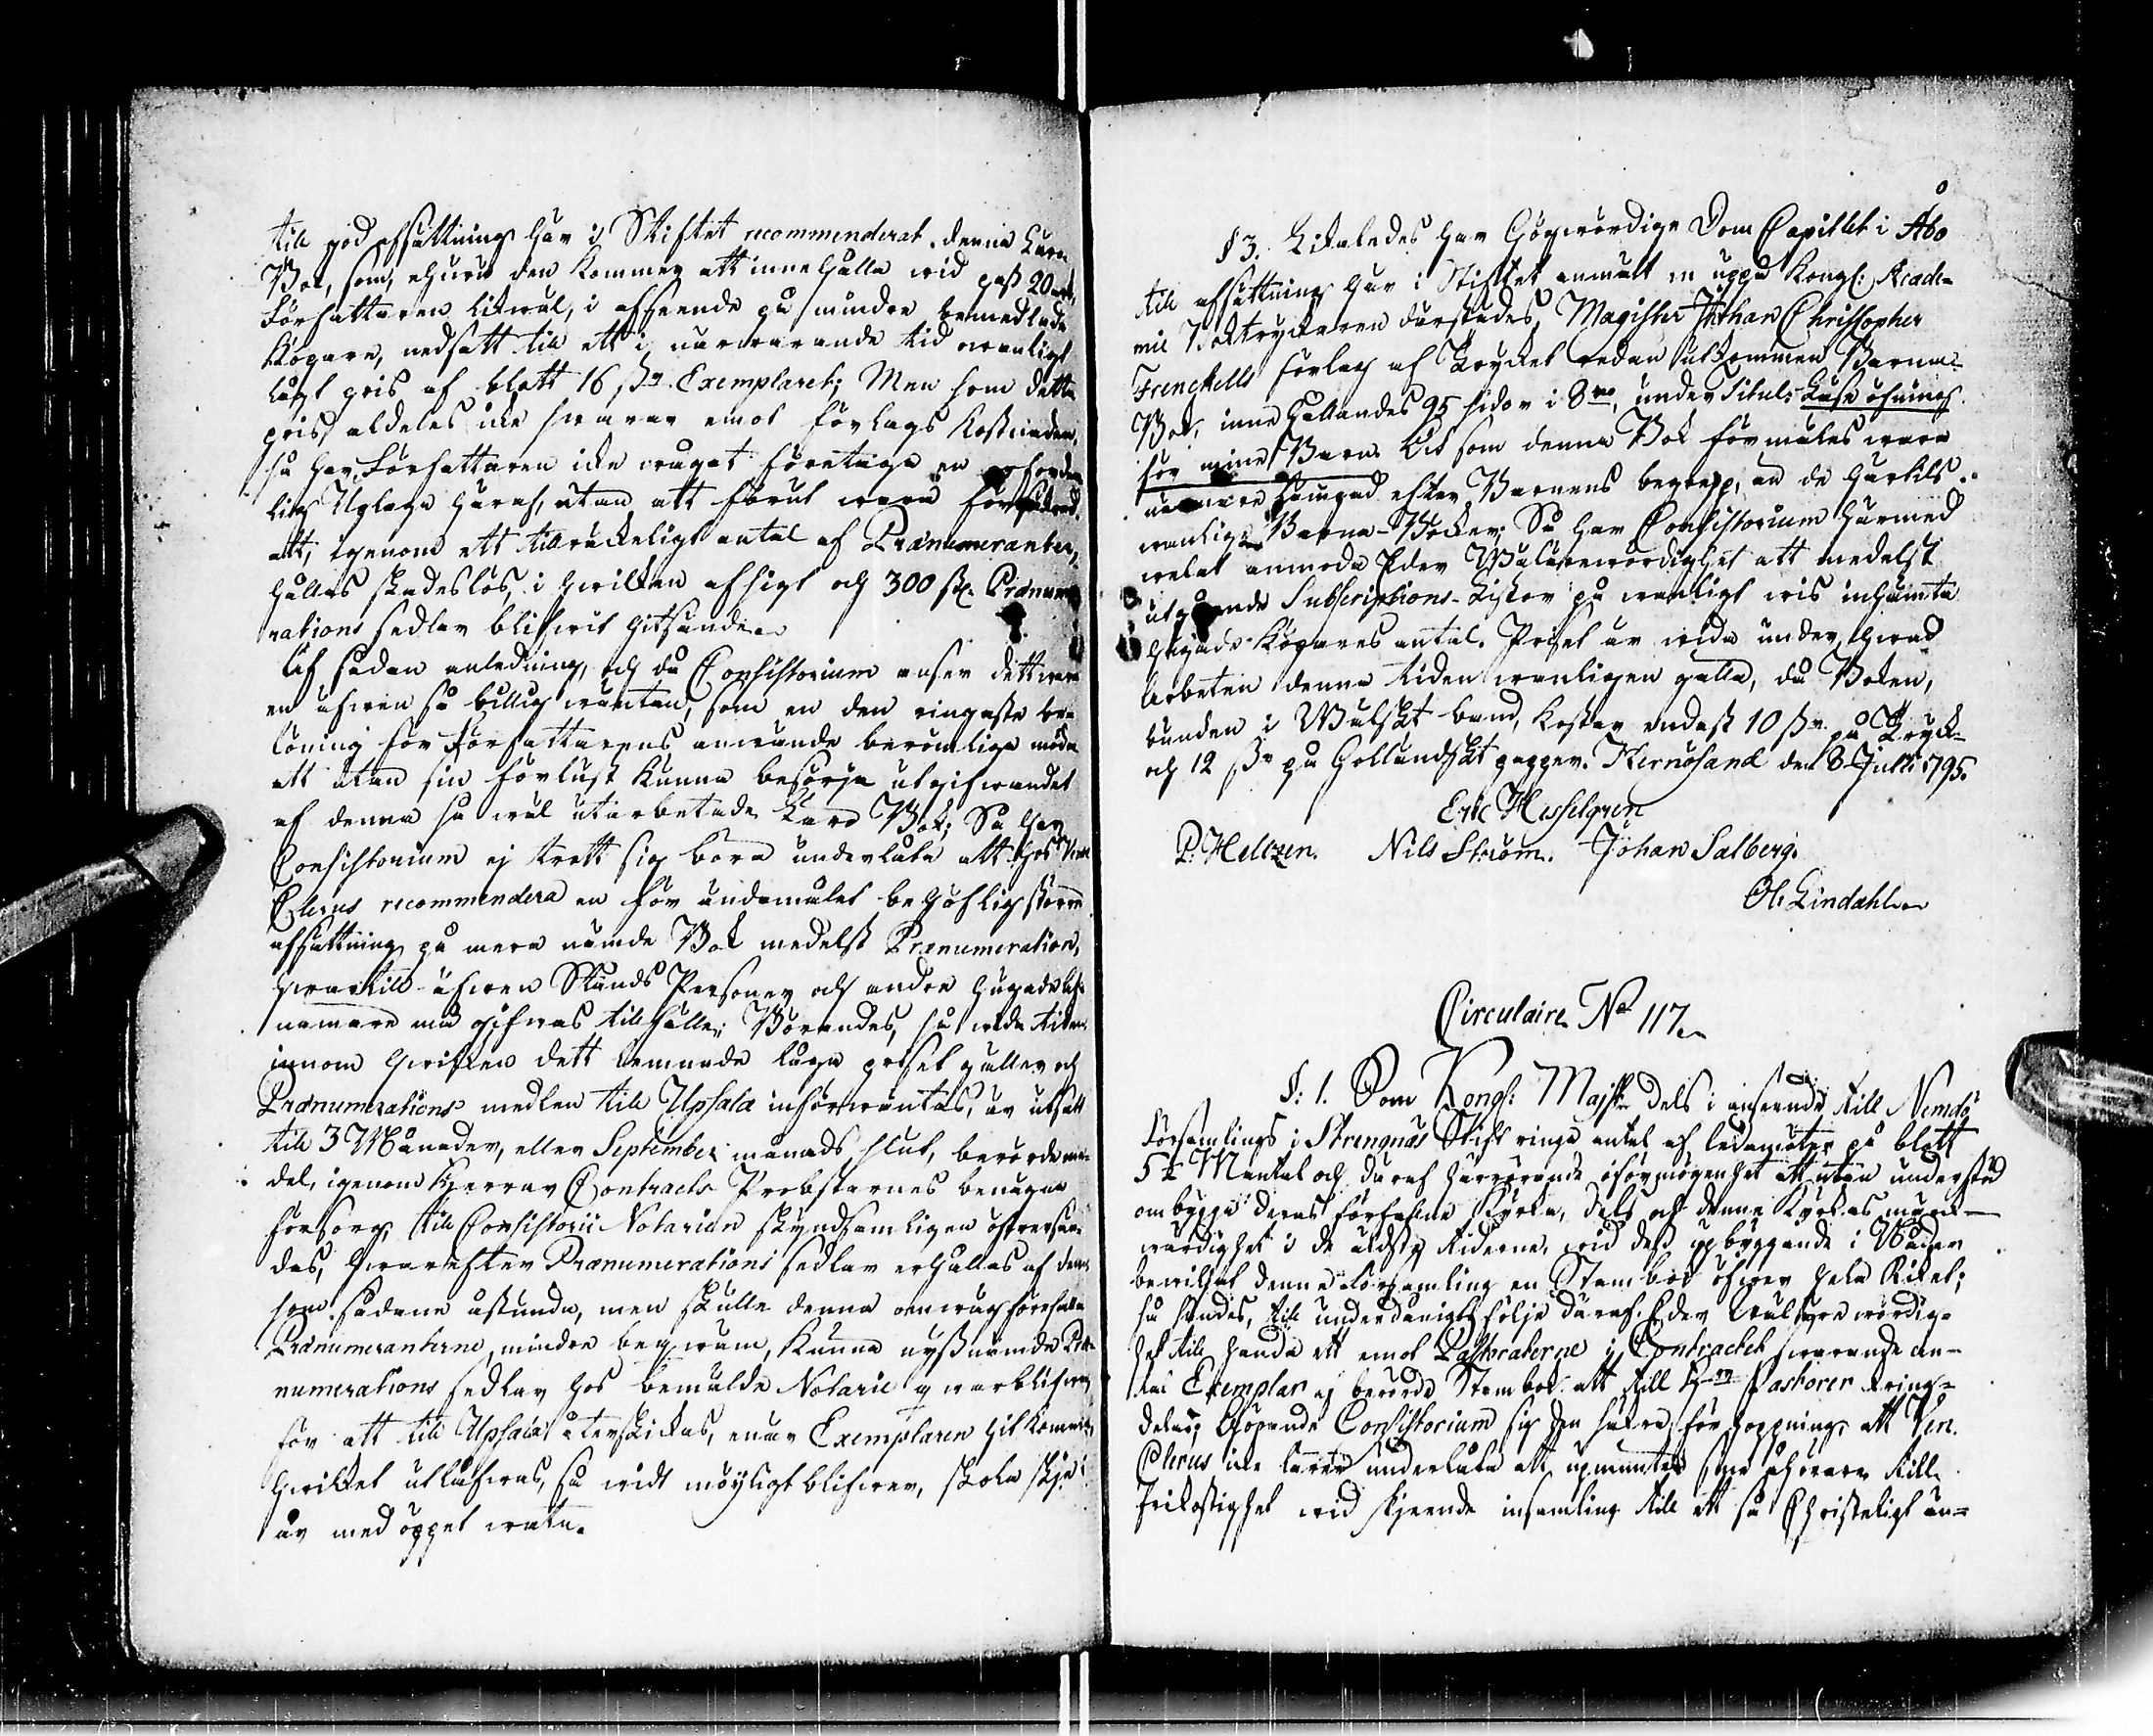 till god afsättning här i Stiftet recommenderat denna Läro
Bok, som, ehuru den kommer att innehålla wid pass 20 ark,
Författaren likwäl, i afseende på mindre bemedlade
Köpare, nedsatt till ett i närwarande tid owanligt
lågt pris af blott 16 ß Exemplaret; Men som detta
pris aldeles icke swarar emot förlags kostnaden,
så har Författaren icke wågat företaga en
Uplaga häraf, utan att förut wara försäkrad
att, igenom ett tillräckeligt antal af Prænumeranter,
hållas skadeslös, i hwilken afsigt och 300 st. Prænume
rations sedlar blifwit hitsände.
Af sådan anledning, och då Consistorium anser dett wara
en äfwen så billig wäntan, som en den ringaste be
löning för Författarens anwände berömliga möda
att utan sin förlust kunna besörja utgifwandet
af denna så wäl utarbetade Läro Bok; Så har
Consistorium ej trott sig bora underlåta att hos Vener.
Clerus recommendera en för ändamålet behöflig större
afsättning på mera nämde Bok medelst Prænumeration,
hwartill äfwen Stånds Personer och andre hugade lef
namare må gifwas tillfälle; Börandes, så wida tiden
innom hwilken dett lemnade låga priset gäller och
Prænumerations medlen till Upsala införwäntas, är utsatt
till 3 Månader, eller September månads slut, berörde me
del, igenom Herrar Contracts Probstarnes benägna
försorg, till Consistorii Notarien skyndsamligen öfwersän
das, hwarefter Prænumerations sedlar erhållas af dem
som sådane åstunda, men skulle denna omwäg förefalla
Prænumeranterne mindre beqwäm, kunna nyssnämde Præ
numerations sedlar hos bemälde Notarie qwarblifwa
för att till Upsala återskickas, enär Exemplaren hit komma,
hwilket utlåfwas, så widt möyligt blifwer, skola ske i
år med öppet watn.
§ 3. Likaledes har Högwördige Dom Capitlet i Åbo
till afsättning här i Stiftet anmält en uppå Kongl: Acade-
mie Boktryckaren därstädes, Magister Johan Christopher
Frenckells förlag af Trycket redan utkommen Barna-
Bok, innehållandes 95 sidor i 8vo, under Titul: Läse öfning
för mine Barn. Och som denna Bok förmäles wara
närmare lämpad efter Barnens begrepp, än de härtils
wanlige Barna-Böcker; Så har Consistorium härmed
welat anmoda Eder Wälärewördighet att medelst
utgående Subscriptions-Listor på wanligt wis inhämta
hugade Köpares antal. Priset är wida under, hwad
Arbeten denna tiden wanligen gälla, då Boken,
bunden i Wälskt band, kostar endast 10 ß på Tryck-
och 12 ß på Holländskt papper. Hernösand den 8 Julii 1795.
Eric Hesselgren
P. Hellzen. Nils Ström. Johan Salberg.
Ol. Lindahl
Circulaire No 117.
§: 1. Som Kongl: Majt dels i anseende till Nemdö
Församlings i Strengnäs Stift ringa antal af ledamöter på blott
5 1/2 Mantal och däraf härrörande oförmögenhet att utan understöd
ombygga deras förfalne Kyrka, dels och denne Kyrkas märk-
wärdighet i de äldsta tiderne, wid dess upbyggande i Nåder
bewiljat denne Församling en Stambok öfwer hela Riket;
så sändes, till underdånigst följe däraf, Eder Wälärewördig-
het till handa ett emot Pastoraterne i Contractet swarande an-
tal Exemplar af berörde Stambok att till Hrr Pastorer kring-
delas; Hopande Consistorium sig den säkra förhoppning, att Ven.
Clerus icke lärer underlåta att upmuntra sine åhörare till
frikostighet wid skjeende insamling till ett så Christeligt än-